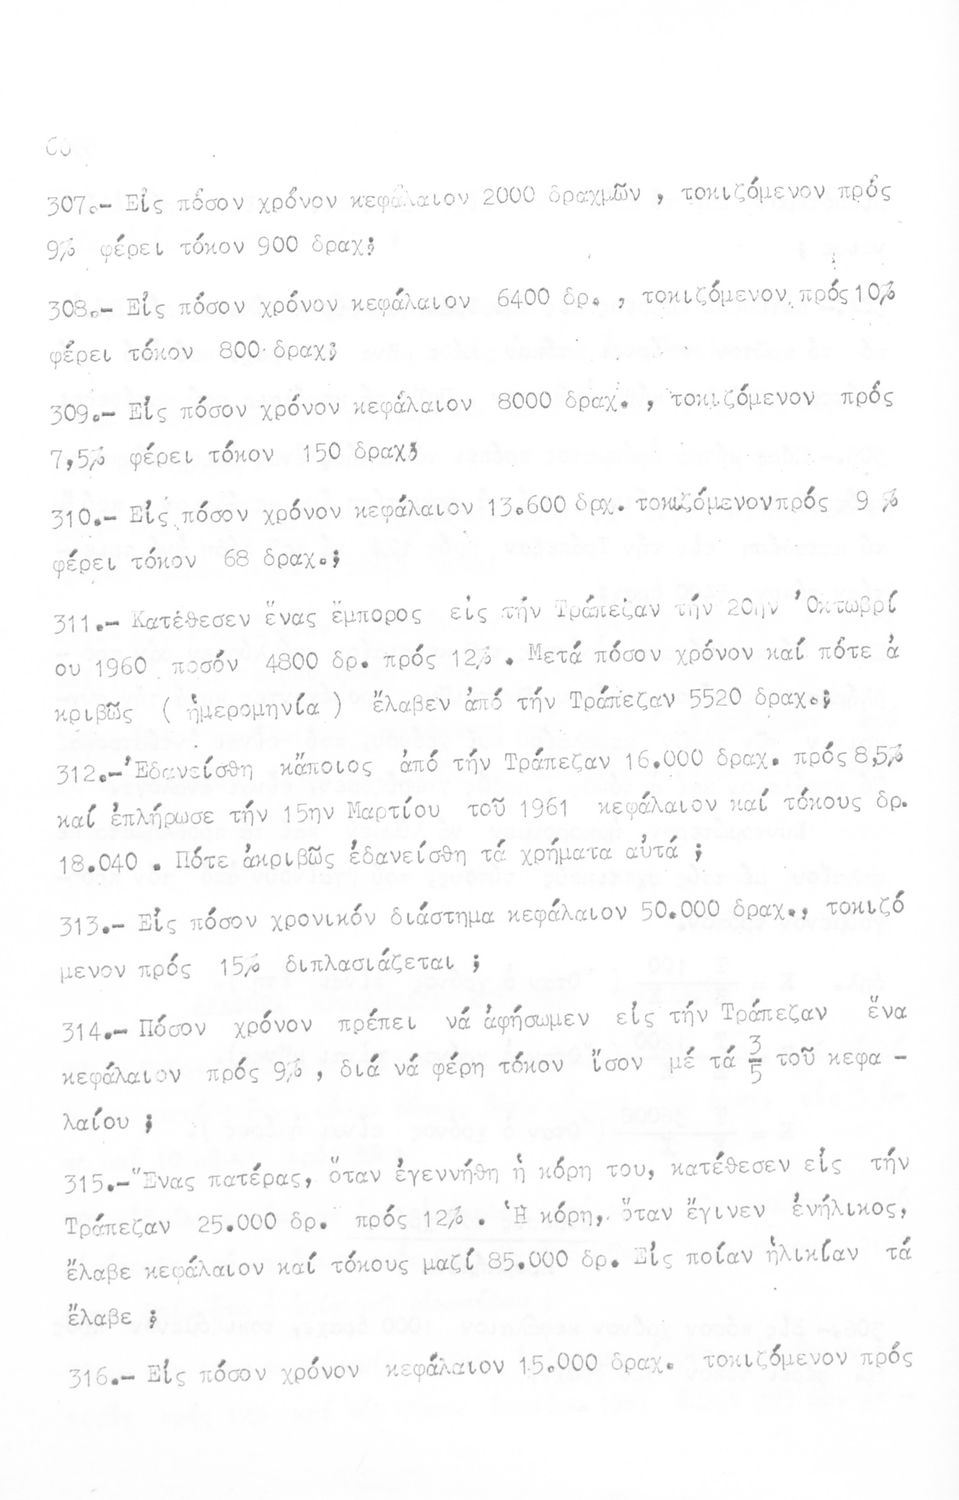 307.- Εἰς πόσον χρόνον κεφάλαιον 2000 δραχμῶν , τοκιζόμενον πρός
9% φέρει τόκον 900 δραχ;
308.- Εἰς πόσον χρόνον κεφάλαιον 6400 δρ. , τοκιζόμενον πρός 10%
φέρει τόκον 800 δραχ;
309.- Εἰς πόσον χρόνον κεφάλαιον 8000 δραχ. , τοκιζόμενον πρός
7,5% φέρει τόκον 150 δραχ;
310.- Εἰς πόσον χρόνον κεφάλαιον 13.600 δρχ. τοκιζόμενον πρός 9 %
φέρει τόκον 68 δραχ.;
311.- Κατέθεσεν ἕνας ἔμπορος εἰς τήν Τράπεζαν τήν 20ήν Ὀκτωβρί
ου 1960 ποσόν 4800 δρ. πρός 12% . Μετά πόσον χρόνον καί πότε ἀ
κριβῶς ( ἡμερομηνία ) ἔλαβεν ἀπό τήν Τράπεζαν 5520 δραχ.;
312.- Ἐδανείσθη κάποιος ἀπό τήν Τράπεζαν 16.000 δραχ. πρός 8,5%
καί ἐπλήρωσε τήν 15ην Μαρτίου τοῦ 1961 κεφάλαιον καί τόκους δρ.
18.040 . Πότε ἀκριβῶς ἐδανείσθη τά χρήματα αὐτά ;
313.- Εἰς πόσον χρονικόν διάστημα κεφάλαιον 50.000 δραχ., τοκιζό
μενον πρός 15% διπλασιάζεται ;
314.- Πόσον χρόνον πρέπει νά ἀφήσωμεν εἰς τήν Τράπεζαν ἕνα
κεφάλαιον πρός 9% , διά νά φέρη τόκον ἴσον μέ τά 3/5 τοῦ κεφα -
λαίου ;
315.- Ἕνας πατέρας, ὅταν ἐγεννήθη ἡ κόρη του, κατέθεσεν εἰς τήν
Τράπεζαν 25.000 δρ. πρός 12% . Ἡ κόρη, ὅταν ἔγινεν ἐνήλικος,
ἔλαβε κεφάλαιον καί τόκους μαζί 85.000 δρ. Εἰς ποίαν ἡλικίαν τά
ἔλαβε ;
316.- Εἰς πόσον χρόνον κεφάλαιον 15.000 δραχ. τοκιζόμενον πρός